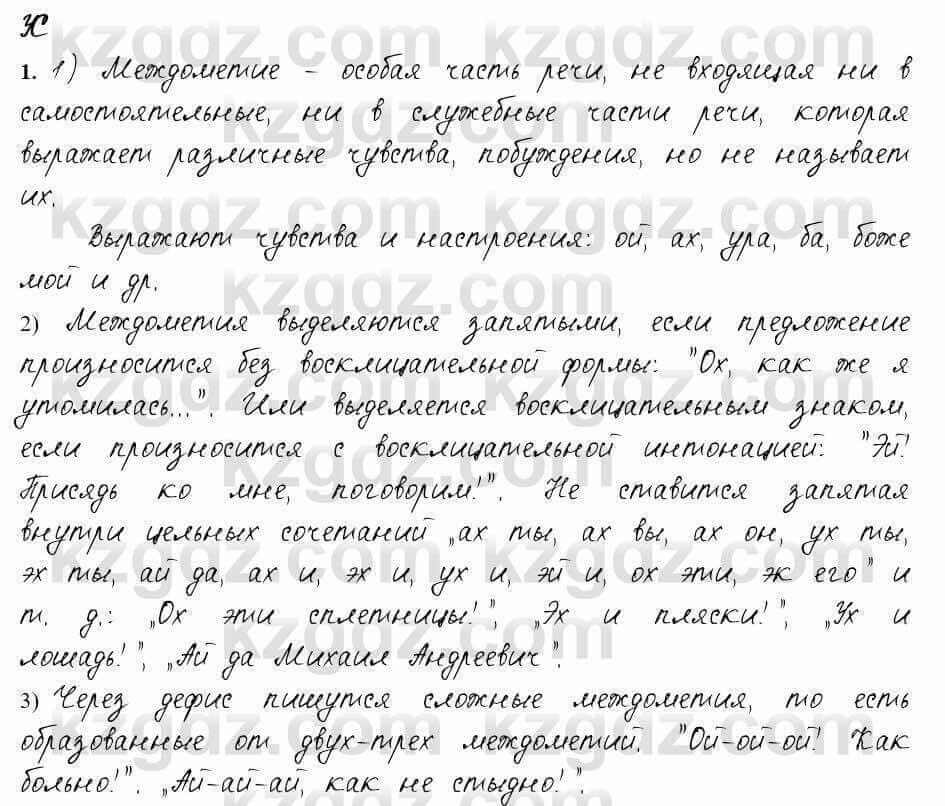 Ж
1. 1) Междометие – особая часть речи, не входящая ни в
самостоятельные, ни в служебные части речи, которая
выражает различные чувства, побуждения, но не называет
их.
Выражают чувства и настроения: ой, ах, ура, ба, боже
мой и др.
2) Междометия выделяются запятыми, если предложение
произносится без восклицательной формы: "Ох, как же я
утомилась...". Или выделяется восклицательным знаком,
если произносится с восклицательной интонацией: "Эй!
Присядь ко мне, поговорим!". Не ставится запятая
внутри цельных сочетаний „ах ты, ах вы, ах он, ух ты,
эх ты, ай да, ах и, эх и, ух и, эй и, ох эти, эк его" и
т. д.: „Ох эти сплетницы!", „Эх и пляски!", „Ух и
лошадь!", „Ай да Михаил Андреевич".
3) Через дефис пишутся сложные междометия, то есть
образованные от двух-трех междометий. "Ой-ой-ой! Как
больно!". „Ай-ай-ай, как не стыдно!".
kzgdz.com